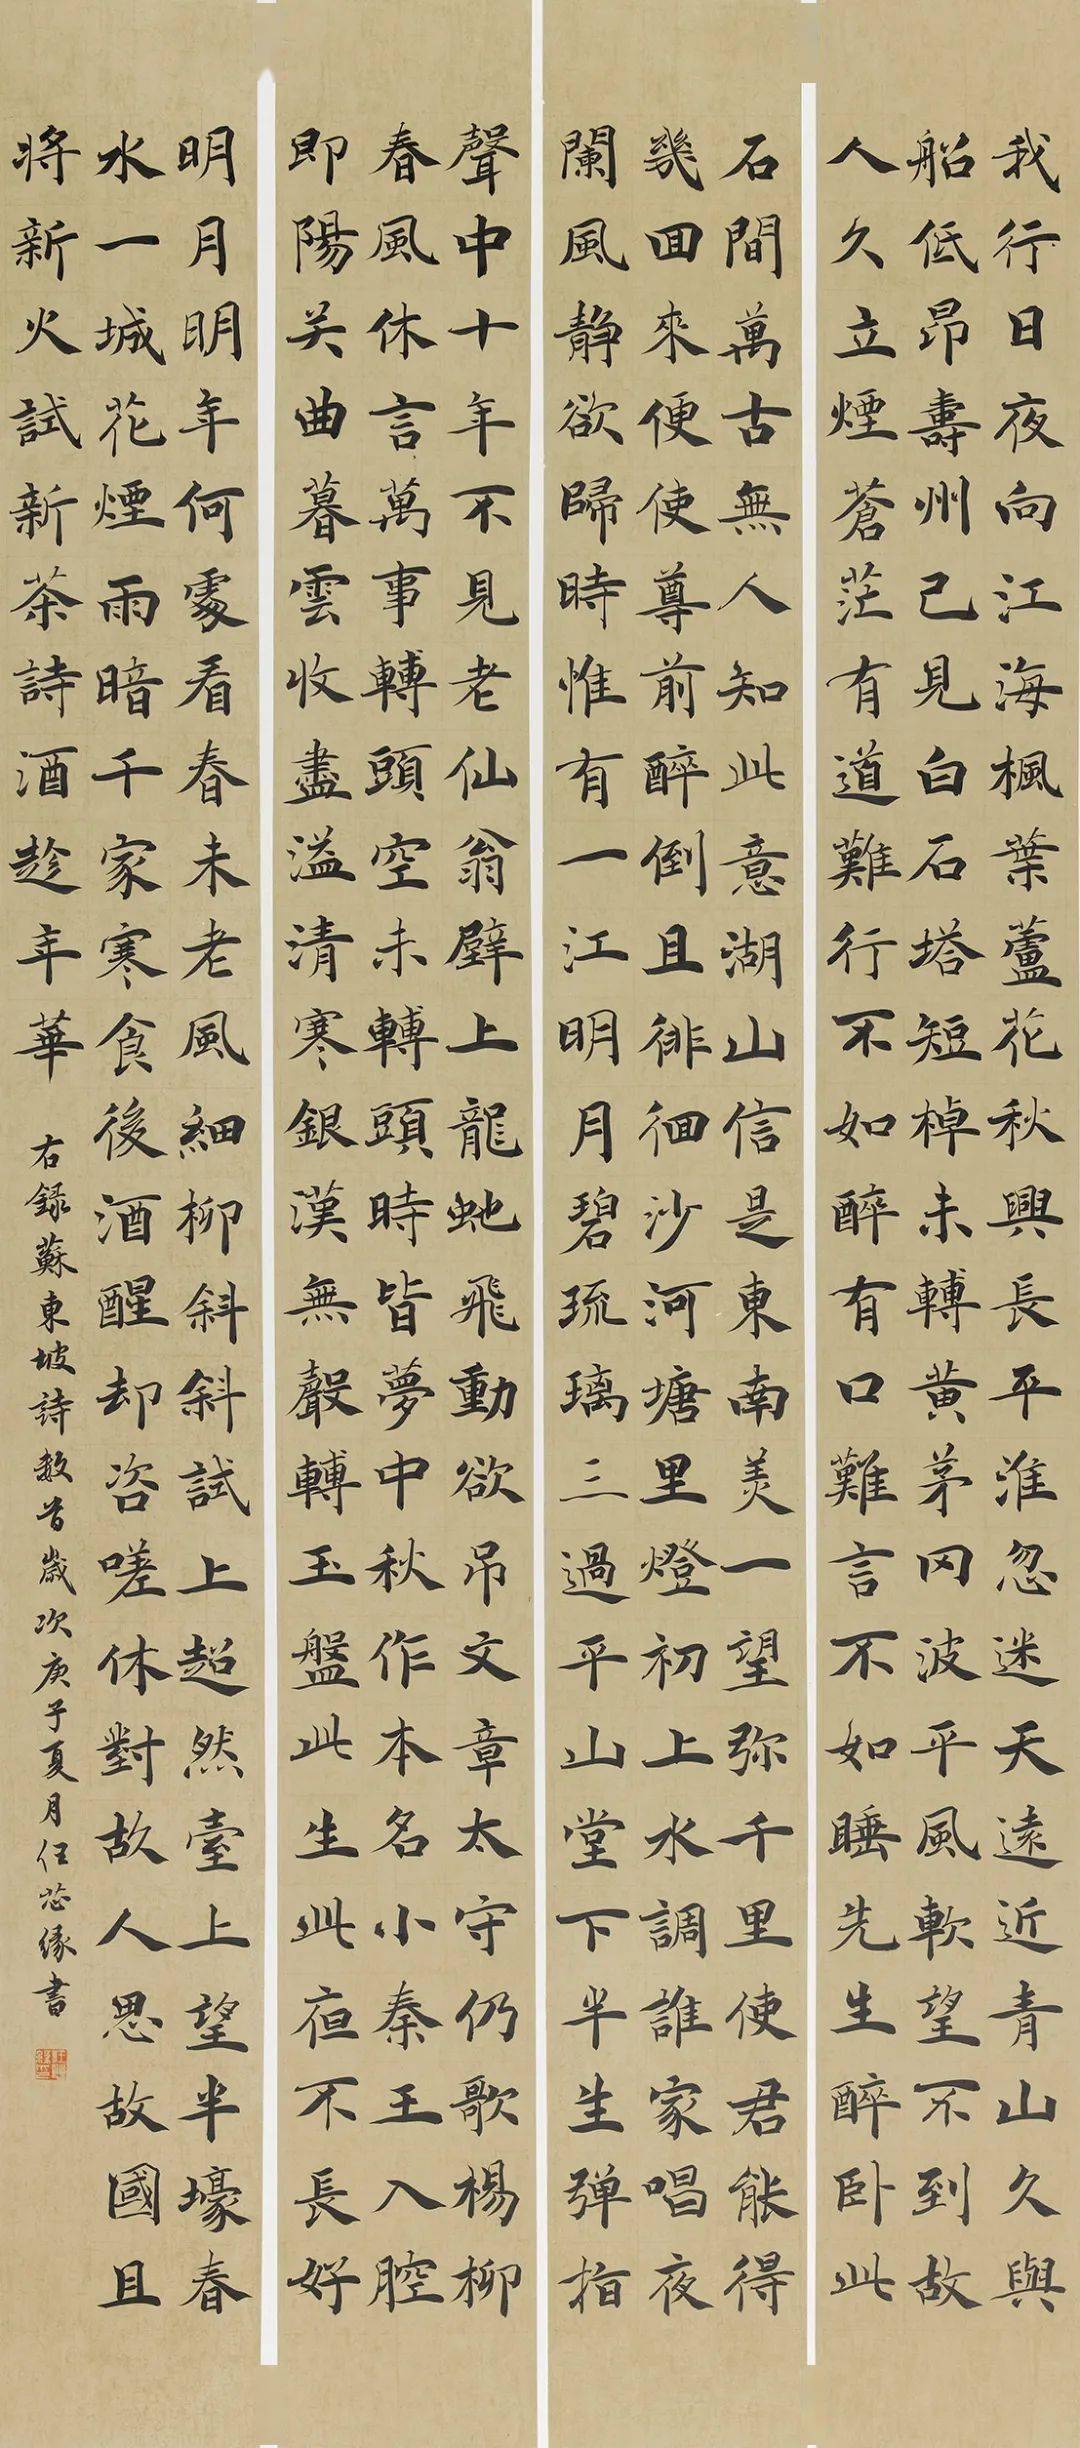 我行日夜向江海楓葉蘆花秋興長平淮忽迷天遠近青山久與
船低昂壽州己見白石塔短棹未轉黃茅岡波平風軟望不到故
人久立煙蒼茫有道難行不如醉有口難言不如睡先生醉卧此
石間萬古無人知此意湖山信是東南美一望弥千里使君能得
幾回來便使尊前醉倒且徘徊沙河塘里燈初上水調誰家唱夜
闌風静欲歸時惟有一江明月碧琉璃三過平山堂下半生弹指
聲中十年不見老仙翁壁上龍虵飛動欲吊文章太守仍歌楊柳
春風休言萬事轉頭空未轉頭時皆夢中秋作本名小秦王入腔
即陽关曲暮雲收盡溢清寒銀漢無聲轉玉盤此生此夜不長好
明月明年何處看春未老風細柳斜斜試上超然臺上望半壕春
水一城花煙雨暗千家寒食後酒醒却咨嗟休對故人思故國且
將新火試新茶詩酒趁年華
右録蘇東坡詩數首歲次庚子夏月任芯缘書